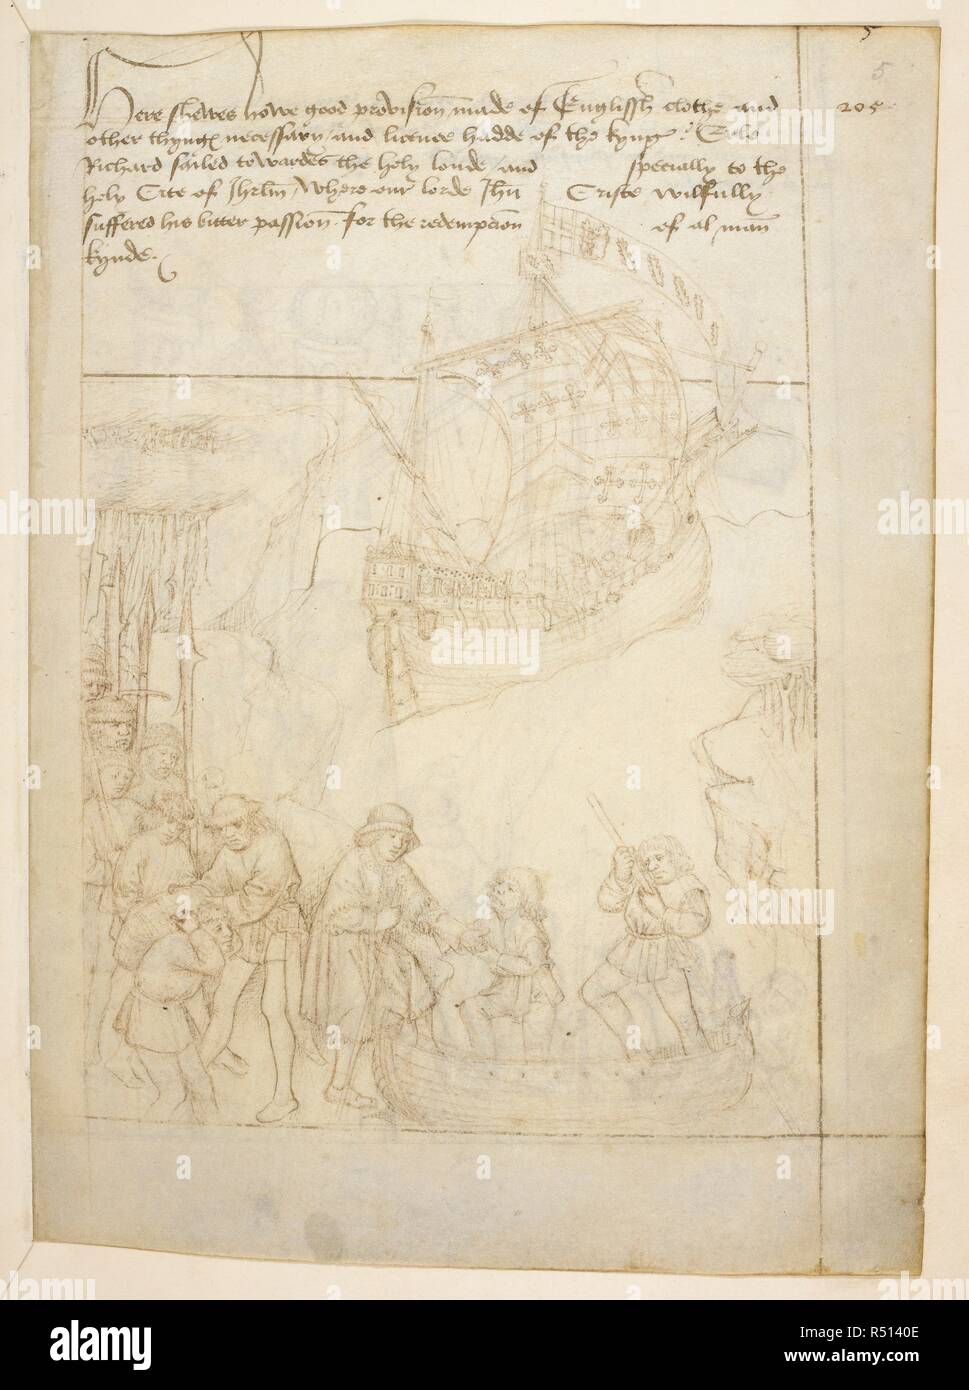 5
5
Here shewes howe good provision made of Englissh clothe and
205
other thyngs necessary / and licence hadde of the kyng : Erle
Richard sailed towardes the holy londe / and specially to the
holy Cite of Jhrlm / Where our lorde Jhu Criste wilfully
suffered his bitter passion for the redempcion of al man
kynde.
alamy
a
alamy
Image ID: R5140E
www.alamy.com